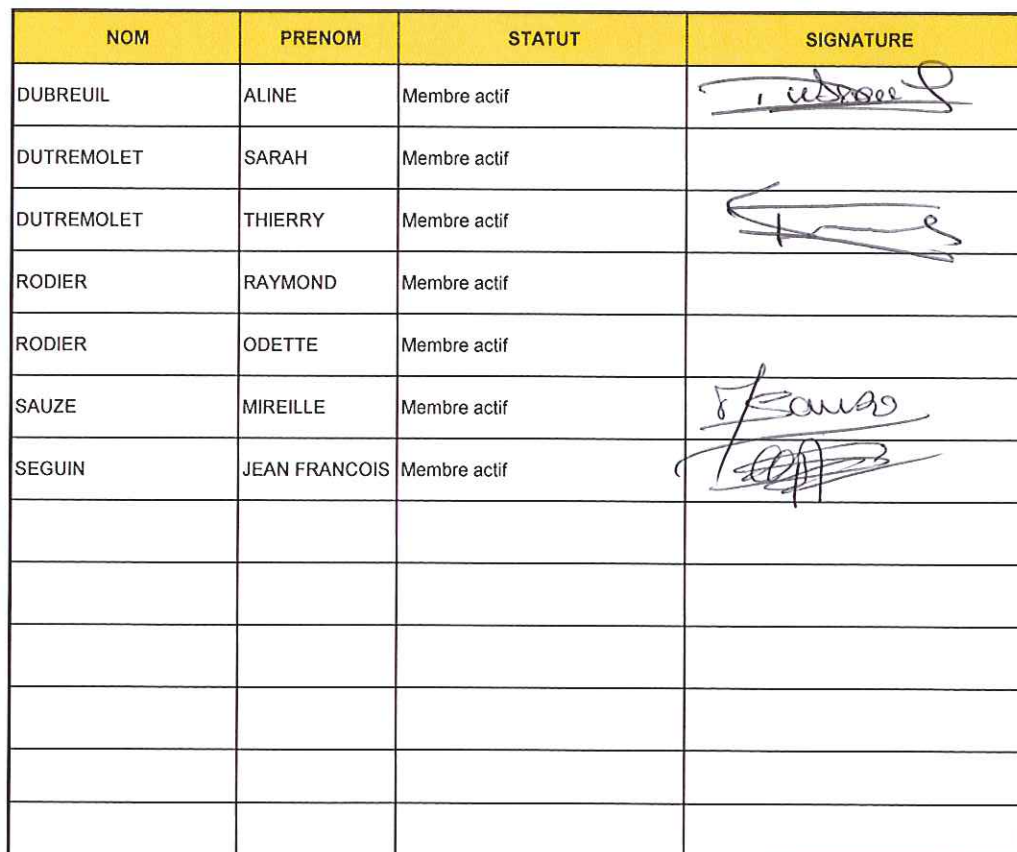 NOM PRENOM STATUT SIGNATURE
DUBREUIL ALINE Membre actif
DUTREMOLET SARAH Membre actif
DUTREMOLET THIERRY Membre actif
RODIER RAYMOND Membre actif
RODIER ODETTE Membre actif
SAUZE MIREILLE Membre actif
SEGUIN JEAN FRANCOIS Membre actif